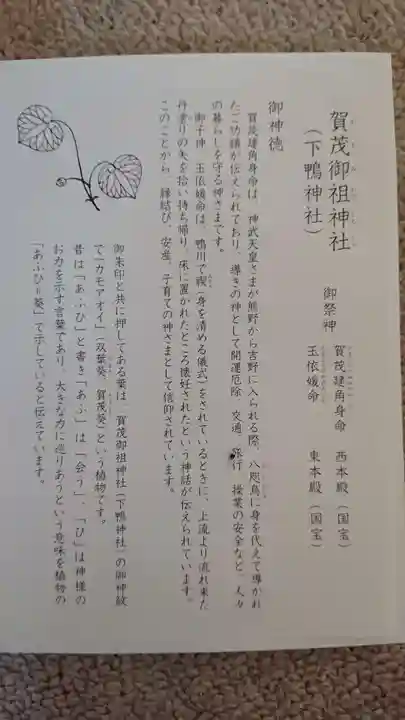 賀茂御祖神社
（下鴨神社）
御祭神
賀茂建角身命　西本殿（国宝）
玉依媛命　東本殿（国宝）
御神徳
賀茂建角身命は、神武天皇さまが熊野から吉野に入られる際、八咫烏に身を代えて導かれ
たご功績が伝えられており、導きの神として開運厄除、交通、旅行、操業の安全など、人々
の暮らしを守る神さまです。
御子神　玉依媛命は、鴨川で禊（身を清める儀式）をされているときに、上流より流れ来た
丹塗りの矢を拾い持ち帰り、床に置かれたところ懐妊されたという神話が伝えられています。
このことから、縁結び、安産、子育ての神さまとして信仰されています。
御朱印と共に押してある葉は、賀茂御祖神社（下鴨神社）の御神紋
で「カモアオイ」（双葉葵、賀茂葵）という植物です。
昔は「あふひ」と書き「あふ」は「会う」、「ひ」は神様の
お力を示す言葉であり、大きな力に巡りあうという意味を植物の
「あふひ＝葵」で示していると伝えています。